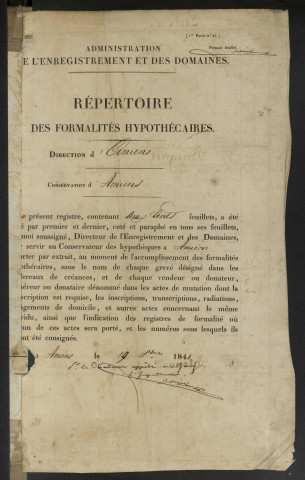 [1re Partie n° 34.]
Premier feuillet
ADMINISTRATION
DE L'ENREGISTREMENT ET DES DOMAINES.
RÉPERTOIRE
DES FORMALITÉS HYPOTHÉCAIRES.
DIRECTION d'Amiens
CONSERVATION d'Amiens
Le présent registre, contenant deux cents feuillets, a été
té par premier et dernier, coté et paraphé en tous ses feuillets,
moi soussigné, Directeur de l'Enregistrement et des Domaines,
r servir au Conservateur des hypothèques à Amiens
orter par extrait, au moment de l'accomplissement des formalités
othécaires, sous le nom de chaque grevé désigné dans les
ereaux de créances, et de chaque vendeur ou donateur,
éreur ou donataire dénommé dans les actes de mutation dont la
scription est requise, les inscriptions, transcriptions, radiations,
ngements de domicile, et autres actes concernant le même
vidu, ainsi que l'indication des registres de formalité où
un de ces actes sera porté, et les numéros sous lesquels ils
ont été consignés.
à Amiens le 19 184